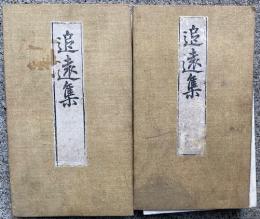 追遠集
追遠集